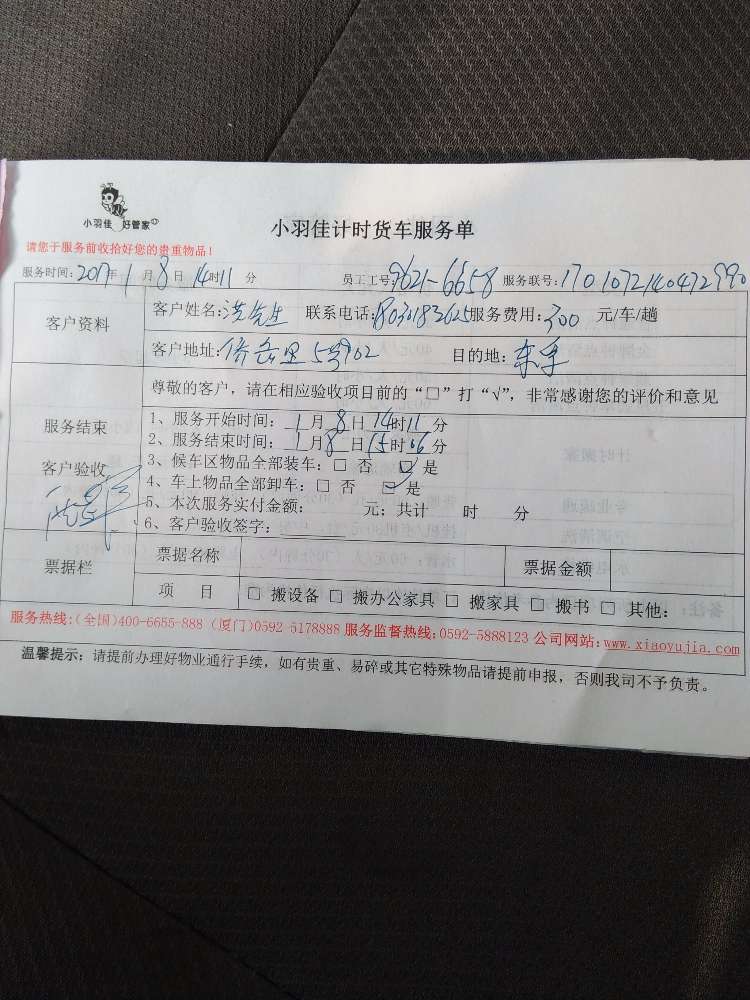 小羽佳 好管家
小羽佳计时货车服务单
请您于服务前收拾好您的贵重物品!
服务时间:2017年1月8日14时11分 员工工号:9621-6658 服务联号:1701072140472990
客户资料 客户姓名:洪先生 联系电话:18030183625服务费用:300 元/车/趟
客户地址:侨岳里5号902 目的地:东孚
尊敬的客户,请在相应验收项目前的“□”打“√”,非常感谢您的评价和意见
服务结束
客户验收
1、服务开始时间:1月8日14时11分
2、服务结束时间:1月8日15时06分
3、候车区物品全部装车:□ 否 □ 是
4、车上物品全部卸车:□ 否 □ 是
5、本次服务实付金额: 元;共计 时 分
6、客户验收签字:
票据栏 票据名称 票据金额
项 目 □ 搬设备 □ 搬办公家具 □ 搬家具 □ 搬书 □ 其他:
服务热线:(全国)400-6655-888 (厦门)0592-5178888 服务监督热线:0592-5888123 公司网站:www.xiaoyujia.com
温馨提示:请提前办理好物业通行手续,如有贵重、易碎或其它特殊物品请提前申报,否则我司不予负责。